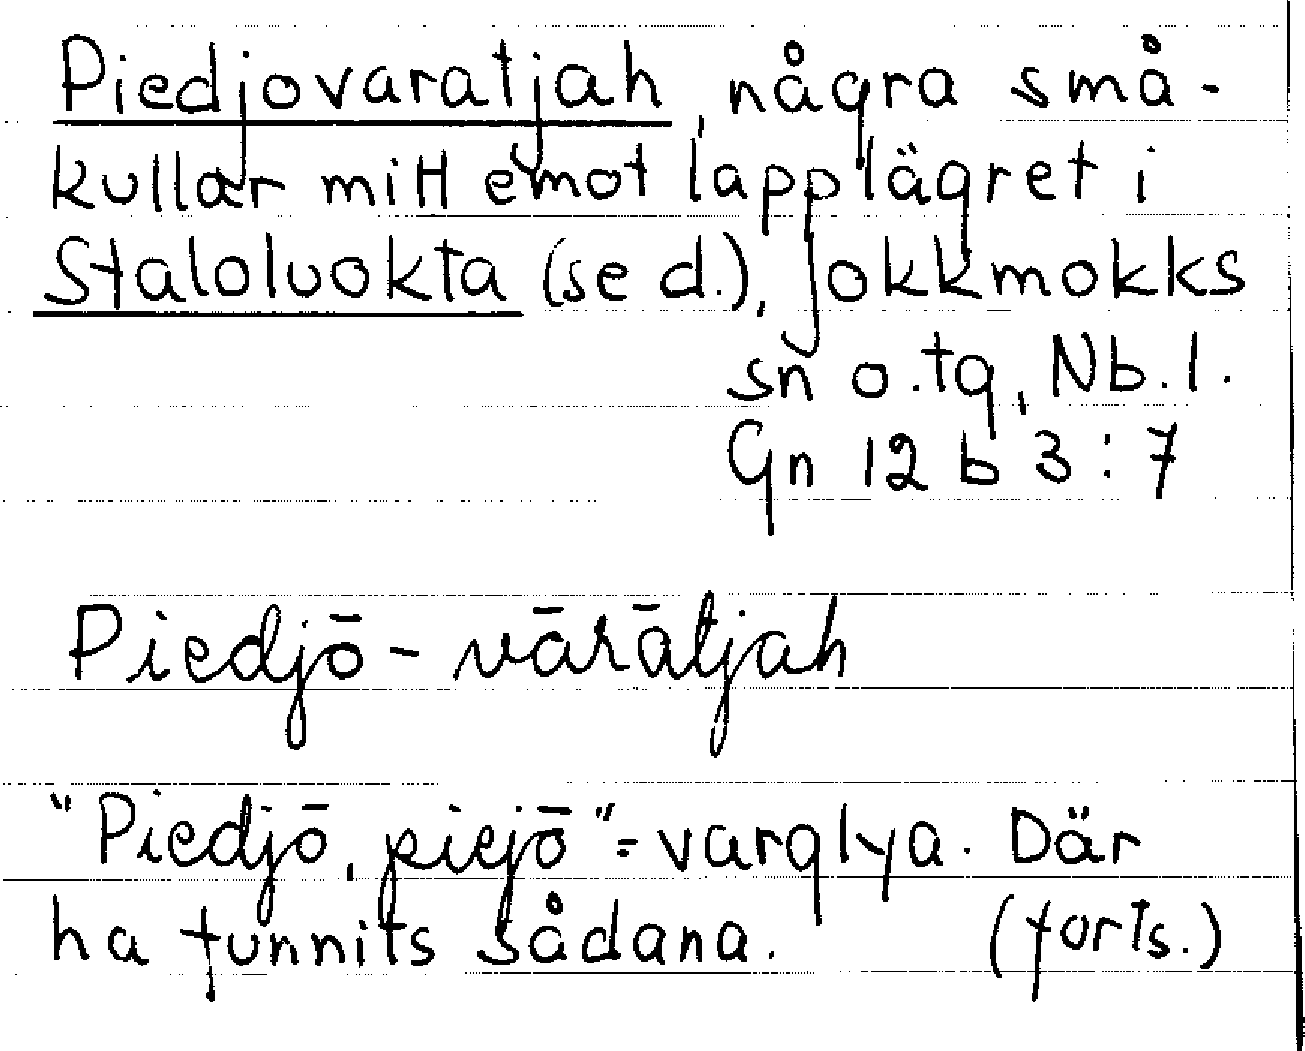 Piedjovaratjah, några små-
kullar mitt emot lapplägret i
Staloluokta (se d.), Jokkmokks
sn o. tg, Nb. l.
Gn 12 b 3:7
Piedjō-vārātjah
"Piedjō, piejō" = varglya. Där
ha funnits sådana. (forts.)